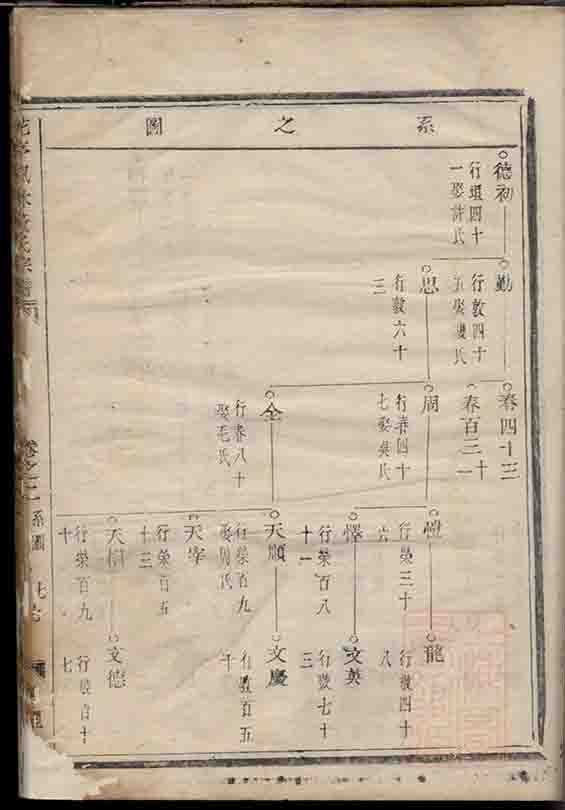 系之圖
德初
行道四十
一娶許氏
勤
行敦四十
五娶虞氏
思
行敦六十
三
春四十三
春百三十
一
周
行春四十
七娶吳氏
全
行春八十
娶毛氏
行榮三十
六
懌
行榮百八
十一
天順
行榮百九
娶周氏
天宰
行榮百五
十三
天
行榮百九
十
龍
行敦四十
八
文英
行敦七十
三
文慶
行敦百五
十
文德
行敦百十
七
卷之二
系圖
七七